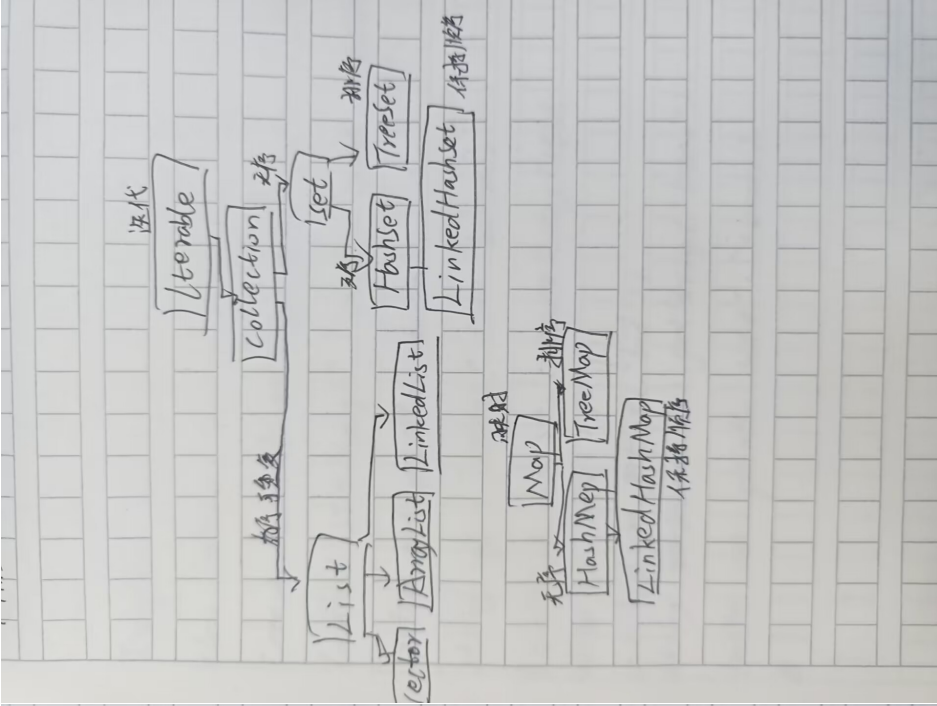 迭代
Iterable
Collection
有序可重复
无序
List
Set
无序
排序
Vector
ArrayList
LinkedList
HashSet
TreeSet
LinkedHashSet
保持顺序
映射
Map
无序
排序
HashMep
TreeMap
LinkedHashMap
保持顺序